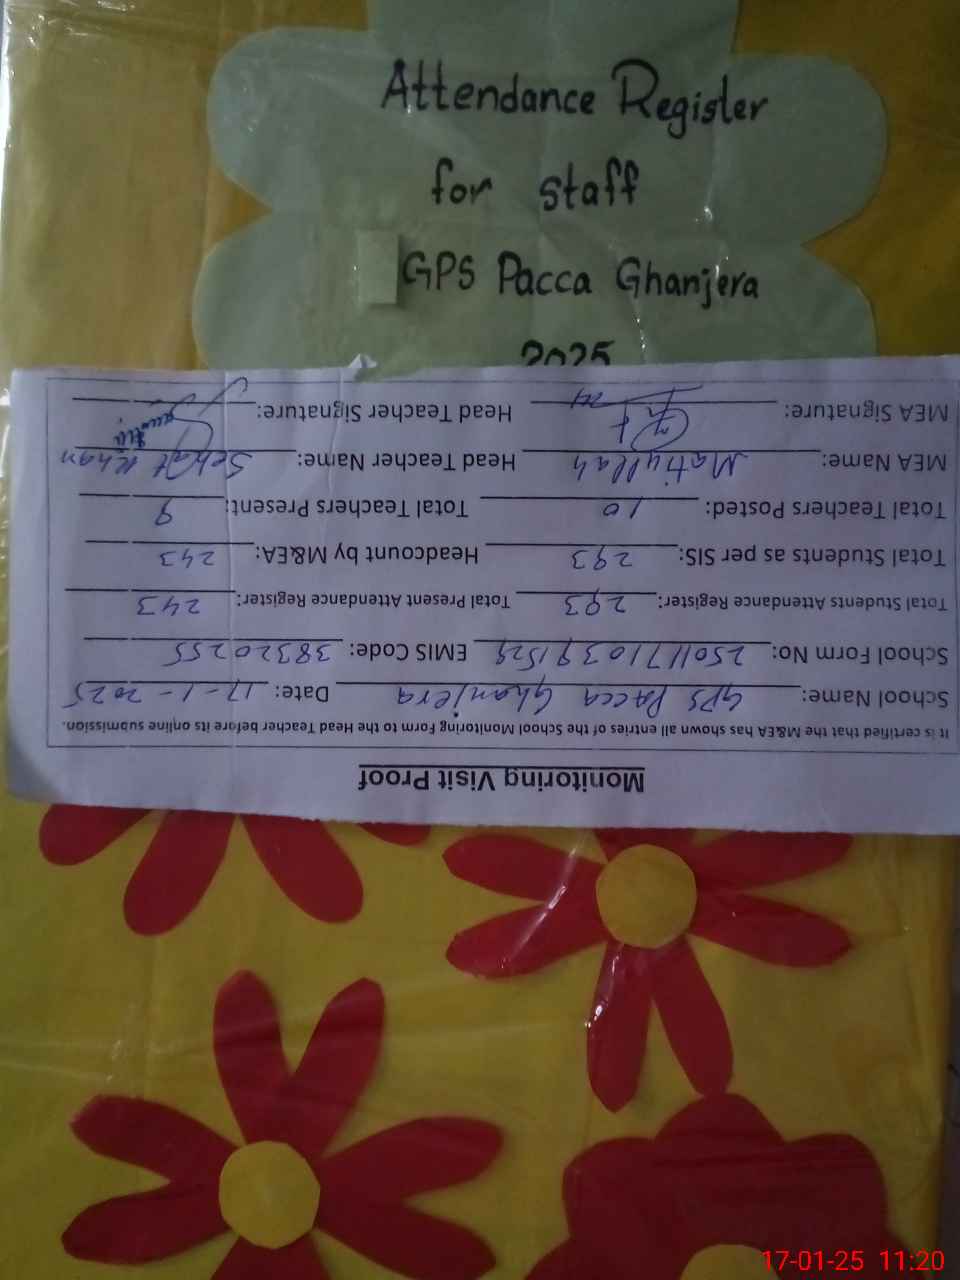 Attendance Register
for staff
GPS Pacca Ghanjera
2025
Monitoring Visit Proof
It is certified that the M&EA has shown all entries of the School Monitoring Form to the Head Teacher before its online submission.
School Name: GPS Pacca Ghanjera Date: 17-1-2025
School Form No: 25011710391529 EMIS Code: 38320255
Total Students Attendance Register: 293 Total Present Attendance Register: 243
Total Students as per SIS: 293 Headcount by M&EA: 243
Total Teachers Posted: 10 Total Teachers Present: 9
MEA Name: Matiullah Head Teacher Name: Sehat Khan
MEA Signature: Head Teacher Signature:
17-01-25 11:20